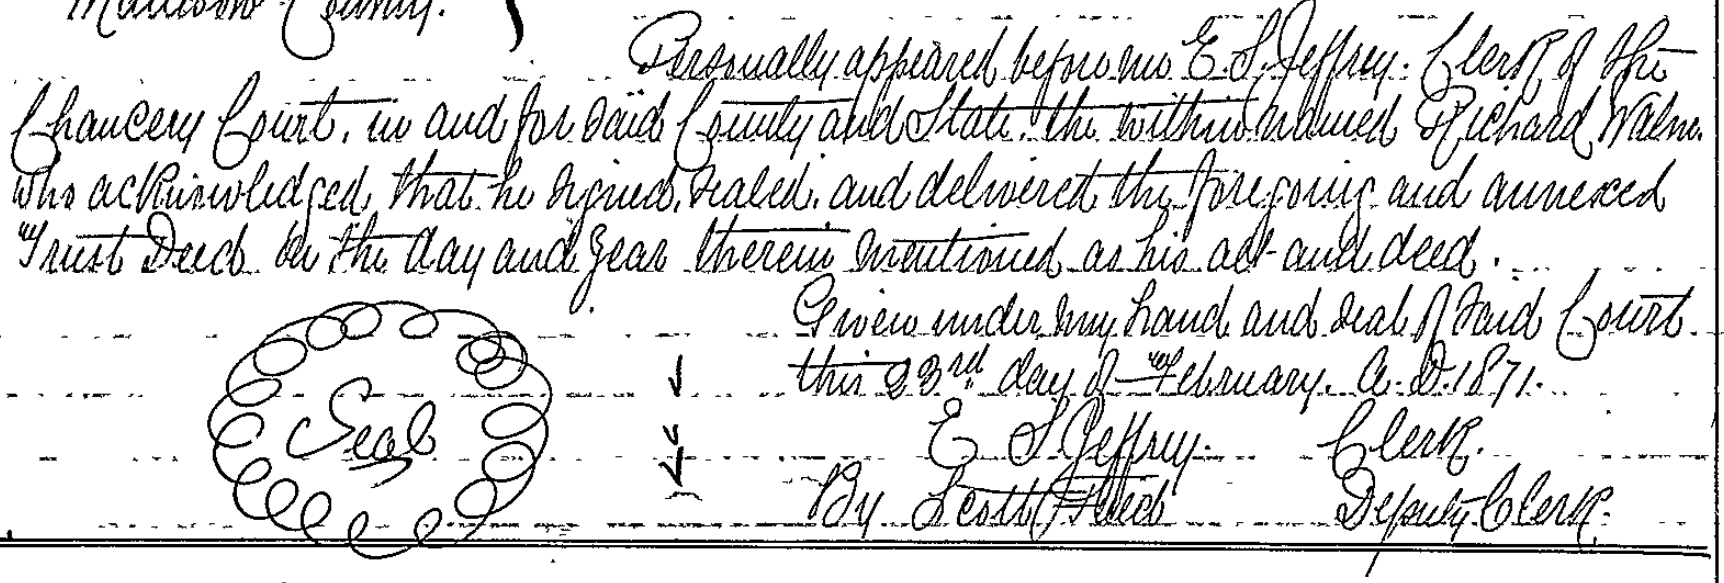 Madison County.
Personally appeared before me E. S. Jeffrey. Clerk of the
Chancery Court, in and for said County and State, the within named Richard Walne.
who acknowledged, that he signed, sealed, and delivered the foregoing and annexed
Trust Deed on the day and year therein mentioned as his act and deed.
Given under my hand and seal of said Court.
this 23rd day of February. A. D. 1871.
Seal
E S Jeffrey. Clerk.
By Scott Deputy Clerk.